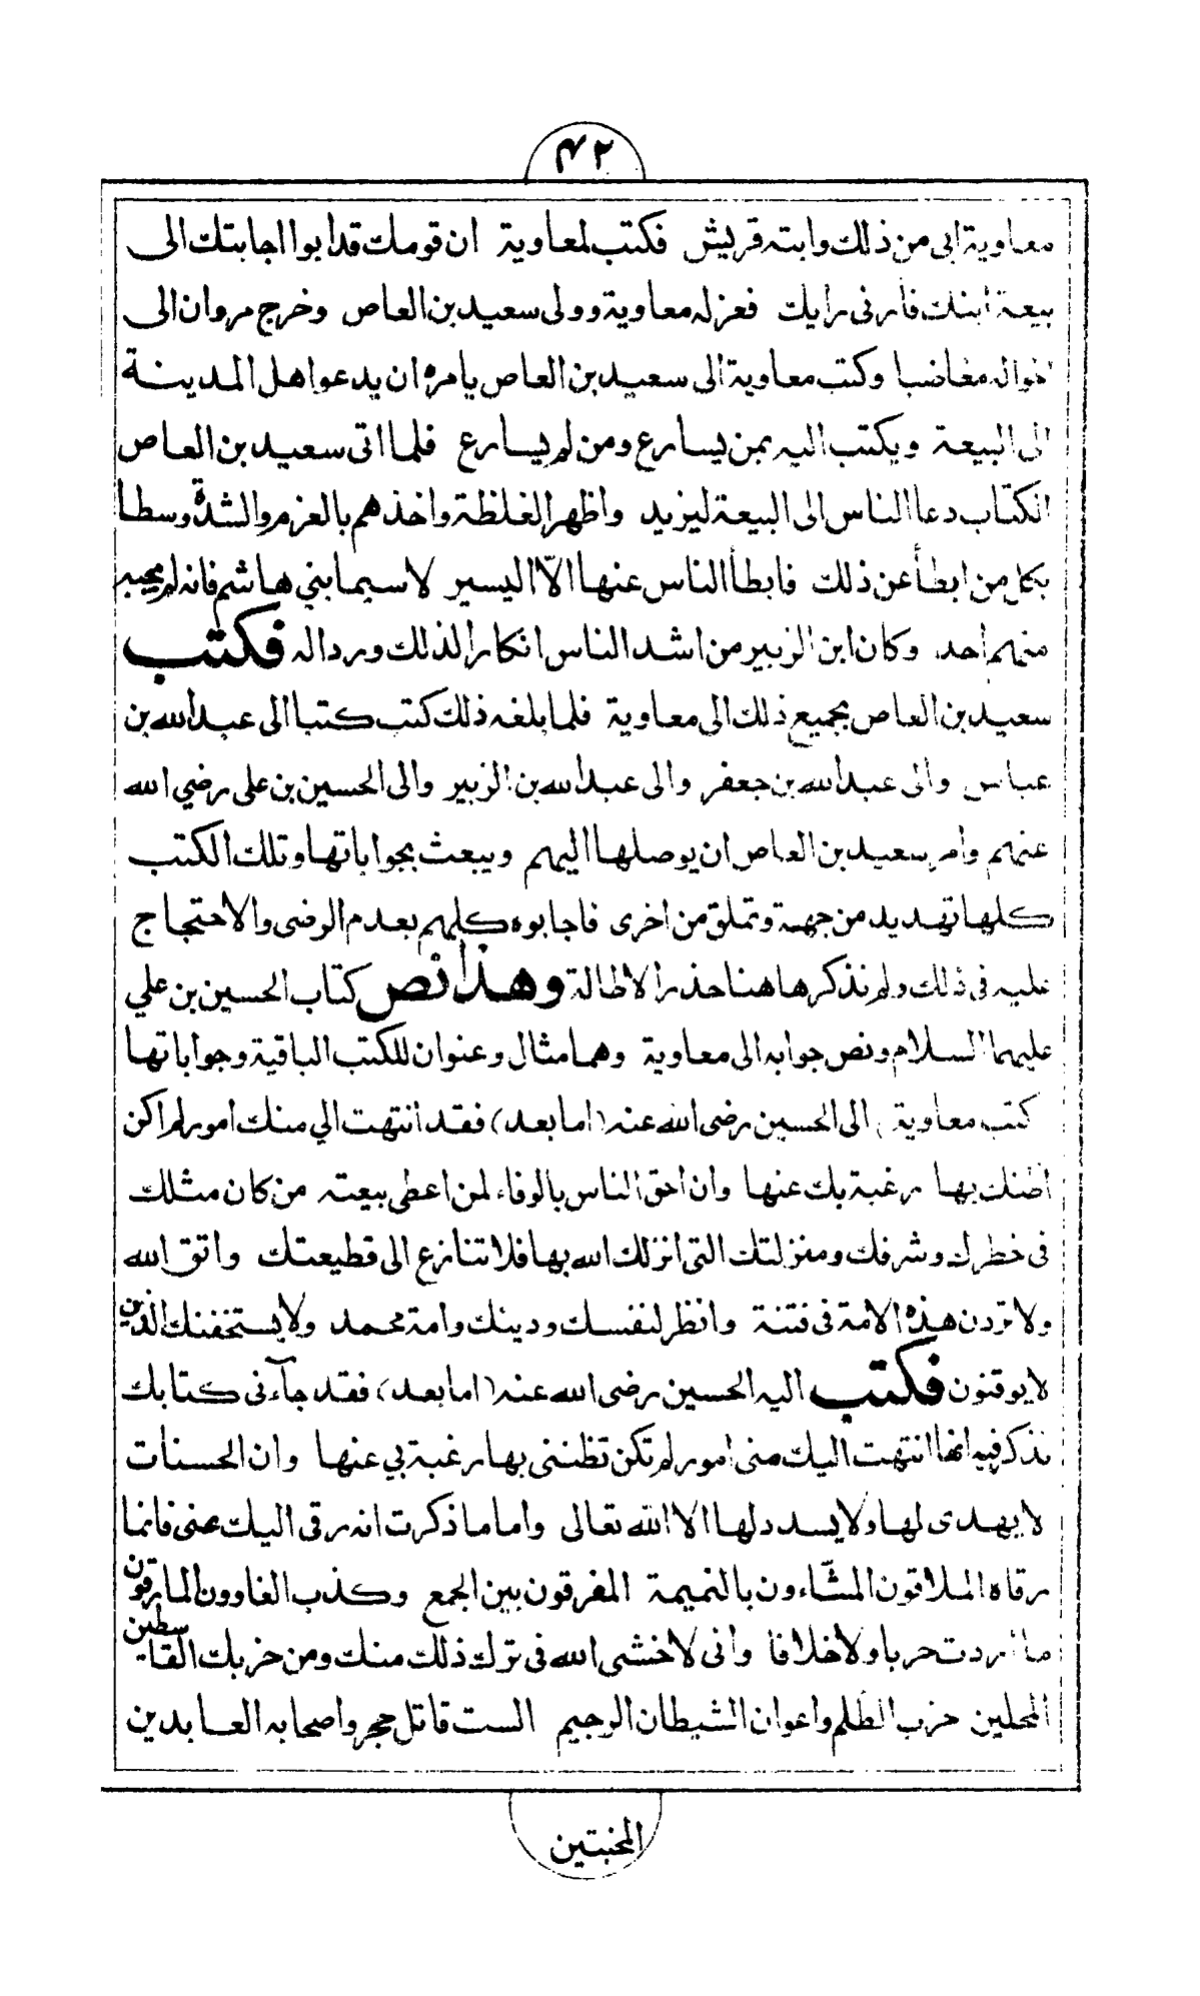 ٤٢
معاوية ابى من ذلك وابته قريش فكتب لمعاوية ان قومك قد ابوا اجابتك الى
بيعة ابنك فأرنى رايك فعزله معاوية وولى سعيد بن العاص وخرج مروان الى
اخواله مغاضبا وكتب معاوية الى سعيد بن العاص يامره ان يدعوا هل المدينة
الى البيعة ويكتب اليه بمن يسارع ومن لم يسارع فلما اتى سعيد بن العاص
الكتاب دعا الناس الى البيعة ليزيد واظهر الغلظة واخذهم بالعزم والشدة وسطا
بكل من ابطأ عن ذلك فابطأ الناس عنها الّا اليسير لا سيما بني هاشم فانه لم يجبه
منهم احد وكان ابن الزبير من اشد الناس انكارا لذلك وردا له فكتب
سعيد بن العاص بجميع ذلك الى معاوية فلما بلغه ذلك كتب كتبا الى عبد الله بن
عباس والى عبد الله بن جعفر والى عبد الله بن الزبير والى الحسين بن على رضي الله
عنهم وامر سعيد بن العاص ان يوصلها اليهم ويبعث بجواباتها وتلك الكتب
كلها تهديد من جهة وتملق من اخرى فاجابوه كلهم بعدم الرضى والاحتجاج
عليه فى ذلك ولم نذكرها هنا حذر الاطالة وهذا نص كتاب الحسين بن علي
عليهما السلام ونص جوابه الى معاوية وهما مثال وعنوان للكتب الباقية وجواباتها
كتب معاوية الى الحسين رضى الله عنه (اما بعد) فقد انتهت الي منك امور لم اكن
اظنك بها رغبة بك عنها وان احق الناس بالوفاء لمن اعطى بيعته من كان مثلك
فى خطرك وشرفك ومنزلتك التى انزلك الله بها فلا تنازع الى قطيعتك واتق الله
ولا تردن هذه الامة فى فتنة وانظر لنفسك ودينك وامة محمد ولا يستخفنك الذين
لا يوقنون فكتب اليه الحسين رضى الله عنه (اما بعد) فقد جآء نى كتابك
تذكر فيه انها انتهت اليك منى امور لم تكن تظننى بها رغبة بي عنها وان الحسنات
لا يهدى لها ولا يسدد لها الا الله تعالى واما ما ذكرت انه رقى اليك عنى فانما
رقاه الملاقون المشّاءون بالنميمة المفرقون بين الجمع وكذب الغاوون المارقون
ما اردت حربا ولا خلافا وانى لاخشى الله فى ترك ذلك منك ومن حزبك القاسطين
المحلين حزب الظلم واعوان الشيطان الرجيم الست قاتل حجر واصحابه العابدين
المخبتين